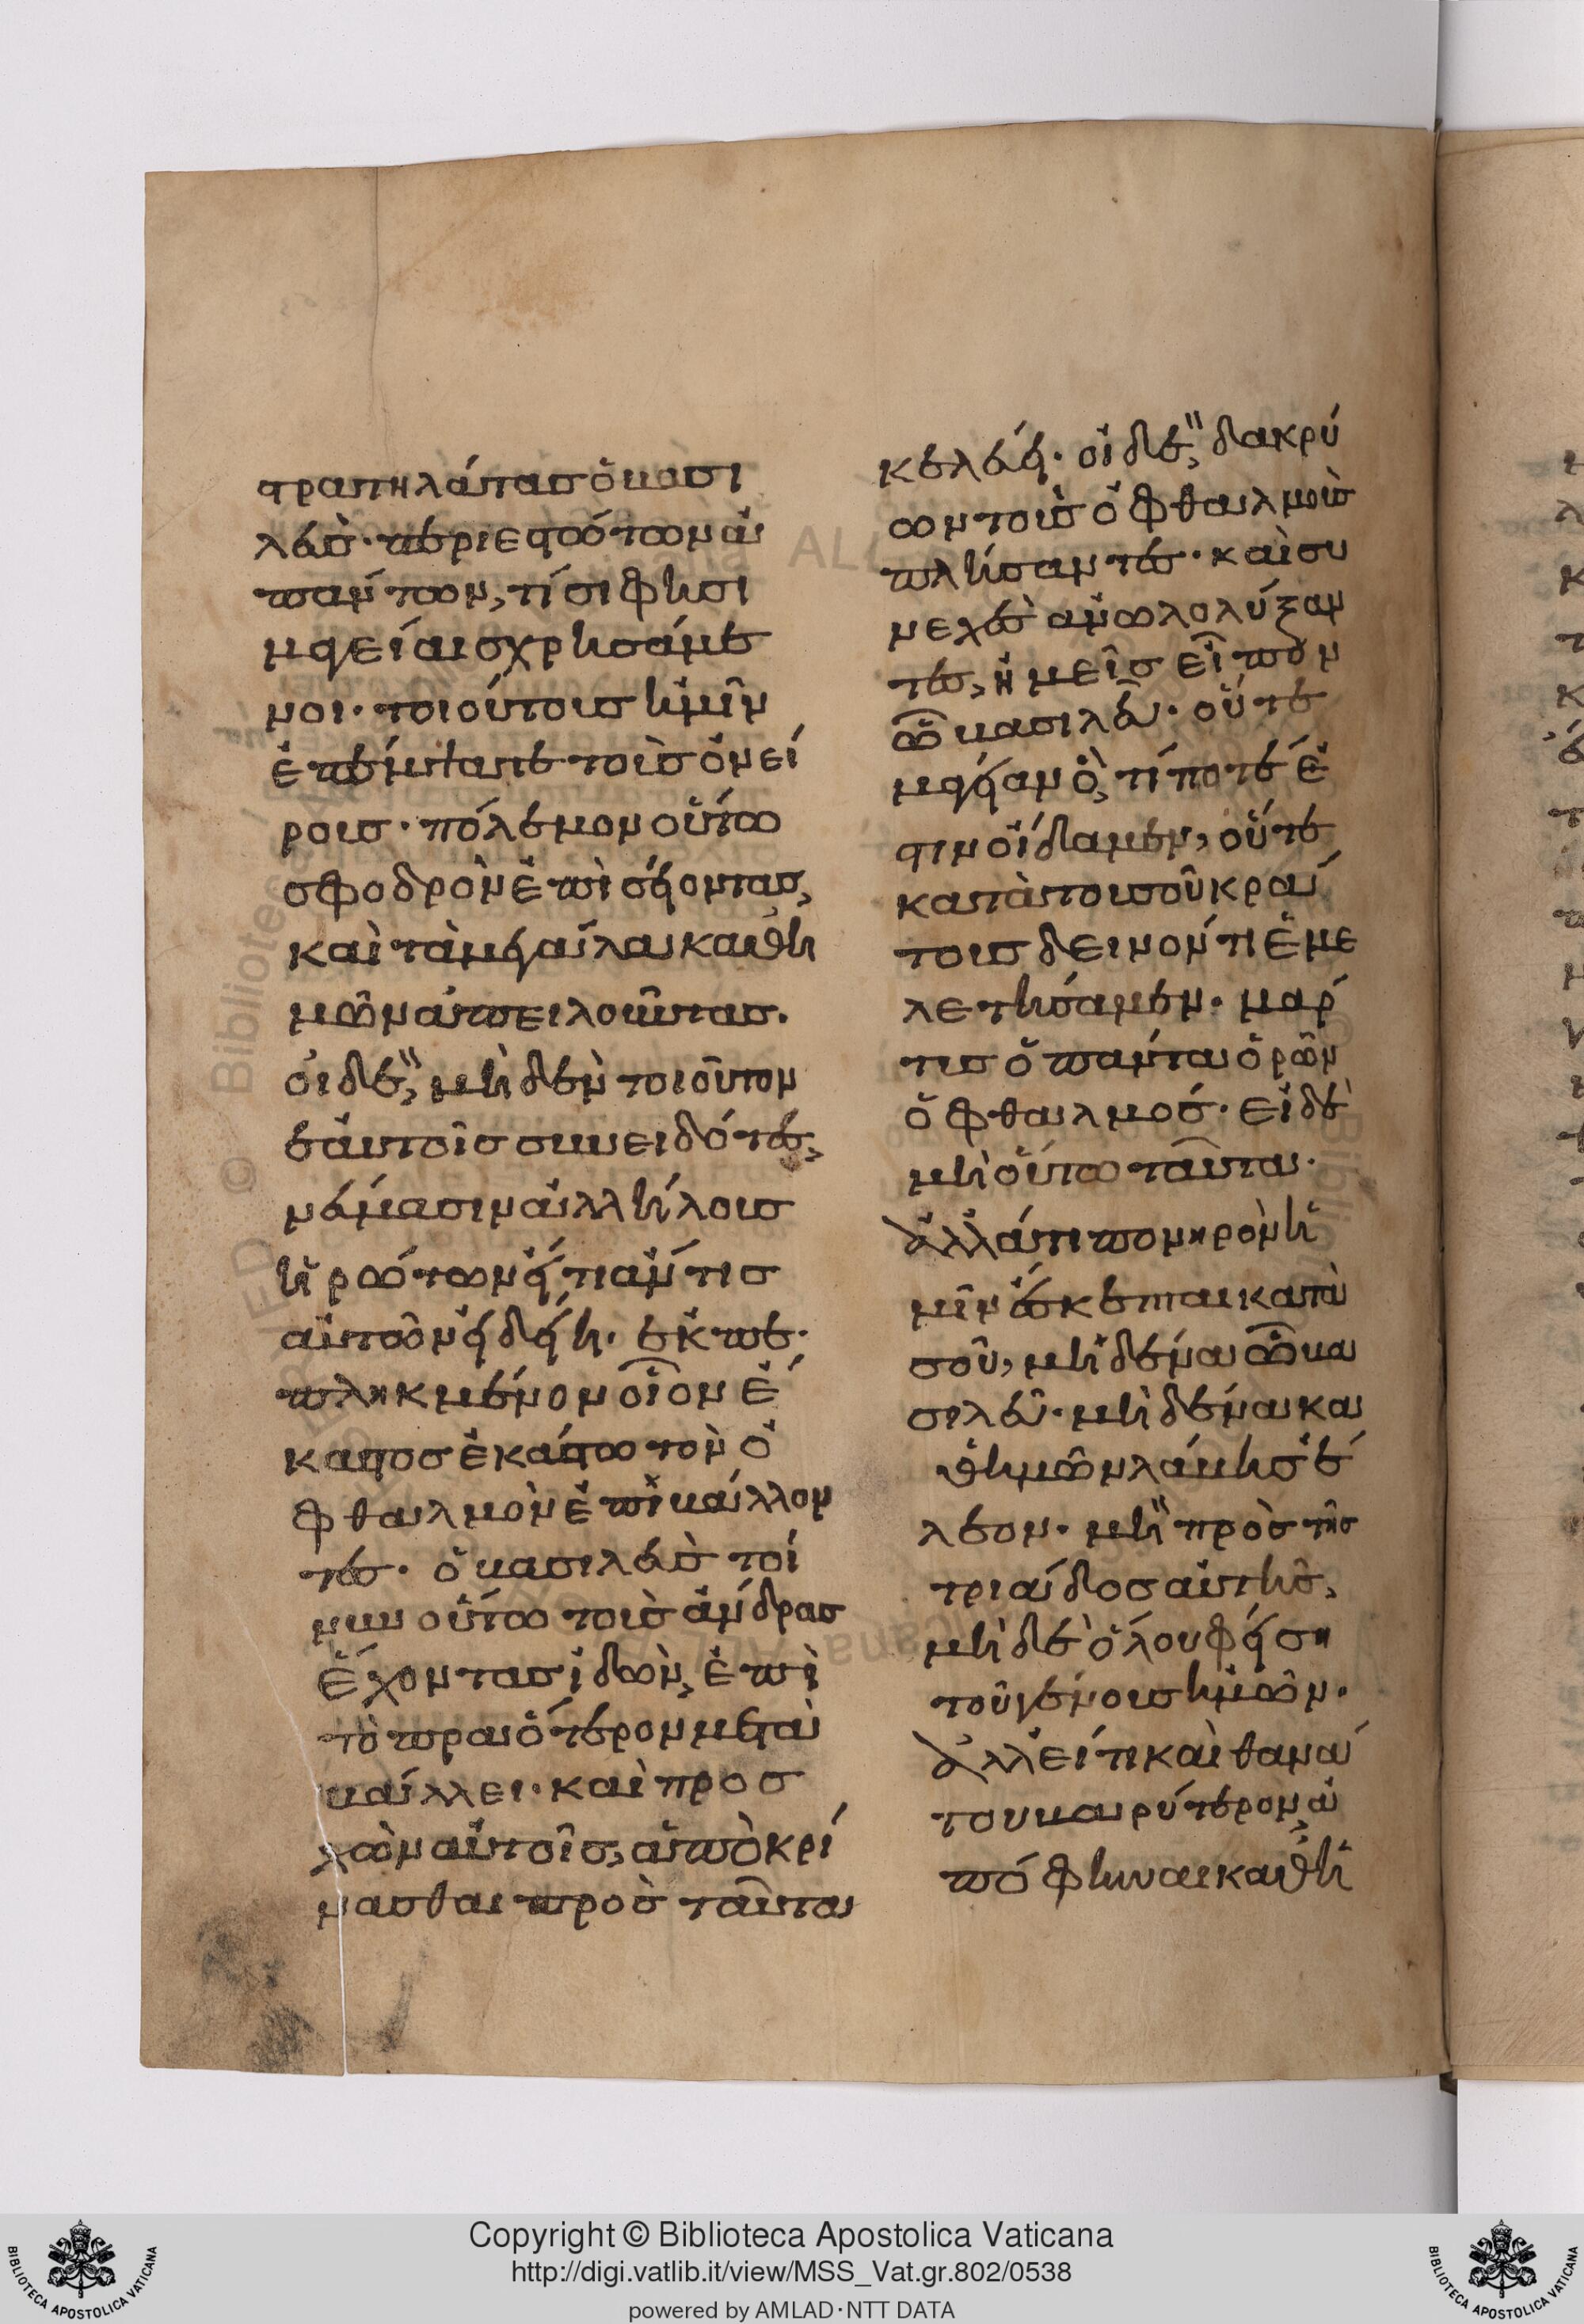 στρατηλάτας ὁ βασι
λεύς· περιεστώτων ἁ
πάντων, τί σι φησὶ
μαγγείαις χρησάμε
νοι· τοιούτοις ἡμῖν
ἐπέμψατε τοῖς ὀνεί
ροις· πόλεμον οὕτω
σφοδρὸν ἐπισείοντας,
καὶ τὰ μεγάλα καθ' ἡ
μῶν ἀπειλοῦντας.
οἱ δὲ, μηδὲν τοιοῦτον
ἑαυτοῖς συνειδότες,
νεύμασιν ἀλλήλοις
ἠρώτων εἴ τι ἄν τις
αὐτῶν εἰδείη. ἐκπε
πληγμένον οἷον ἕ
καστος ἑκάστω τὸν ὀ
φθαλμὸν ἐπιβάλλον
τες· ὁ βασιλεὺς τοί
νυν οὕτω τοὺς ἄνδρας
ἔχοντας ἰδὼν, ἐπὶ
τὸ πραότερον μετα
βάλλει· καὶ προσ
χὼν αὐτοῖς, ἀποκρί
νασθαι πρὸς ταῦτα
κελεύει· οἱ δὲ, δακρύ
ων τοὺς ὀφθαλμοὺς
πλήσαντες· καὶ συ
νεχὲς ἀνωλολύξαν
τες, ἡμεῖς εἶπον
ὦ βασιλεῦ· οὔτε
μαγγανὸν, τί ποτέ ἐ
στιν οἴδαμεν, οὔτε
κατὰ τοῦ σοῦ κρά
τους δεινόν τι ἐμε
λετήσαμεν· μάρ
τυς ὁ πάντα ὁρῶν
ὀφθαλμός· εἰ δὲ
μὴ οὕτω ταῦτα·
ἀλλά τι πονηρὸν ἡ
μῖν ἔσκεπται κατὰ
σοῦ, μηδένα ὦ βα
σιλεῦ· μηδένα κα
θ' ἡμῶν λάβης ἔ
λεον· μὴ πρὸς τῆς
τριάδος αὐτῆς,
μηδὲ ὅλου φείση
τοῦ γένους ἡμῶν·
ἀλλ' εἴ τι καὶ θανά
του βαρύτερον, ἀ
πόφηναι καθ' ἡ
Copyright © Biblioteca Apostolica Vaticana
http://digi.vatlib.it/view/MSS_Vat.gr.802/0538
powered by AMLAD·NTT DATA
BIBLIOTECA APOSTOLICA VATICANA
BIBLIOTECA APOSTOLICA VATICANA